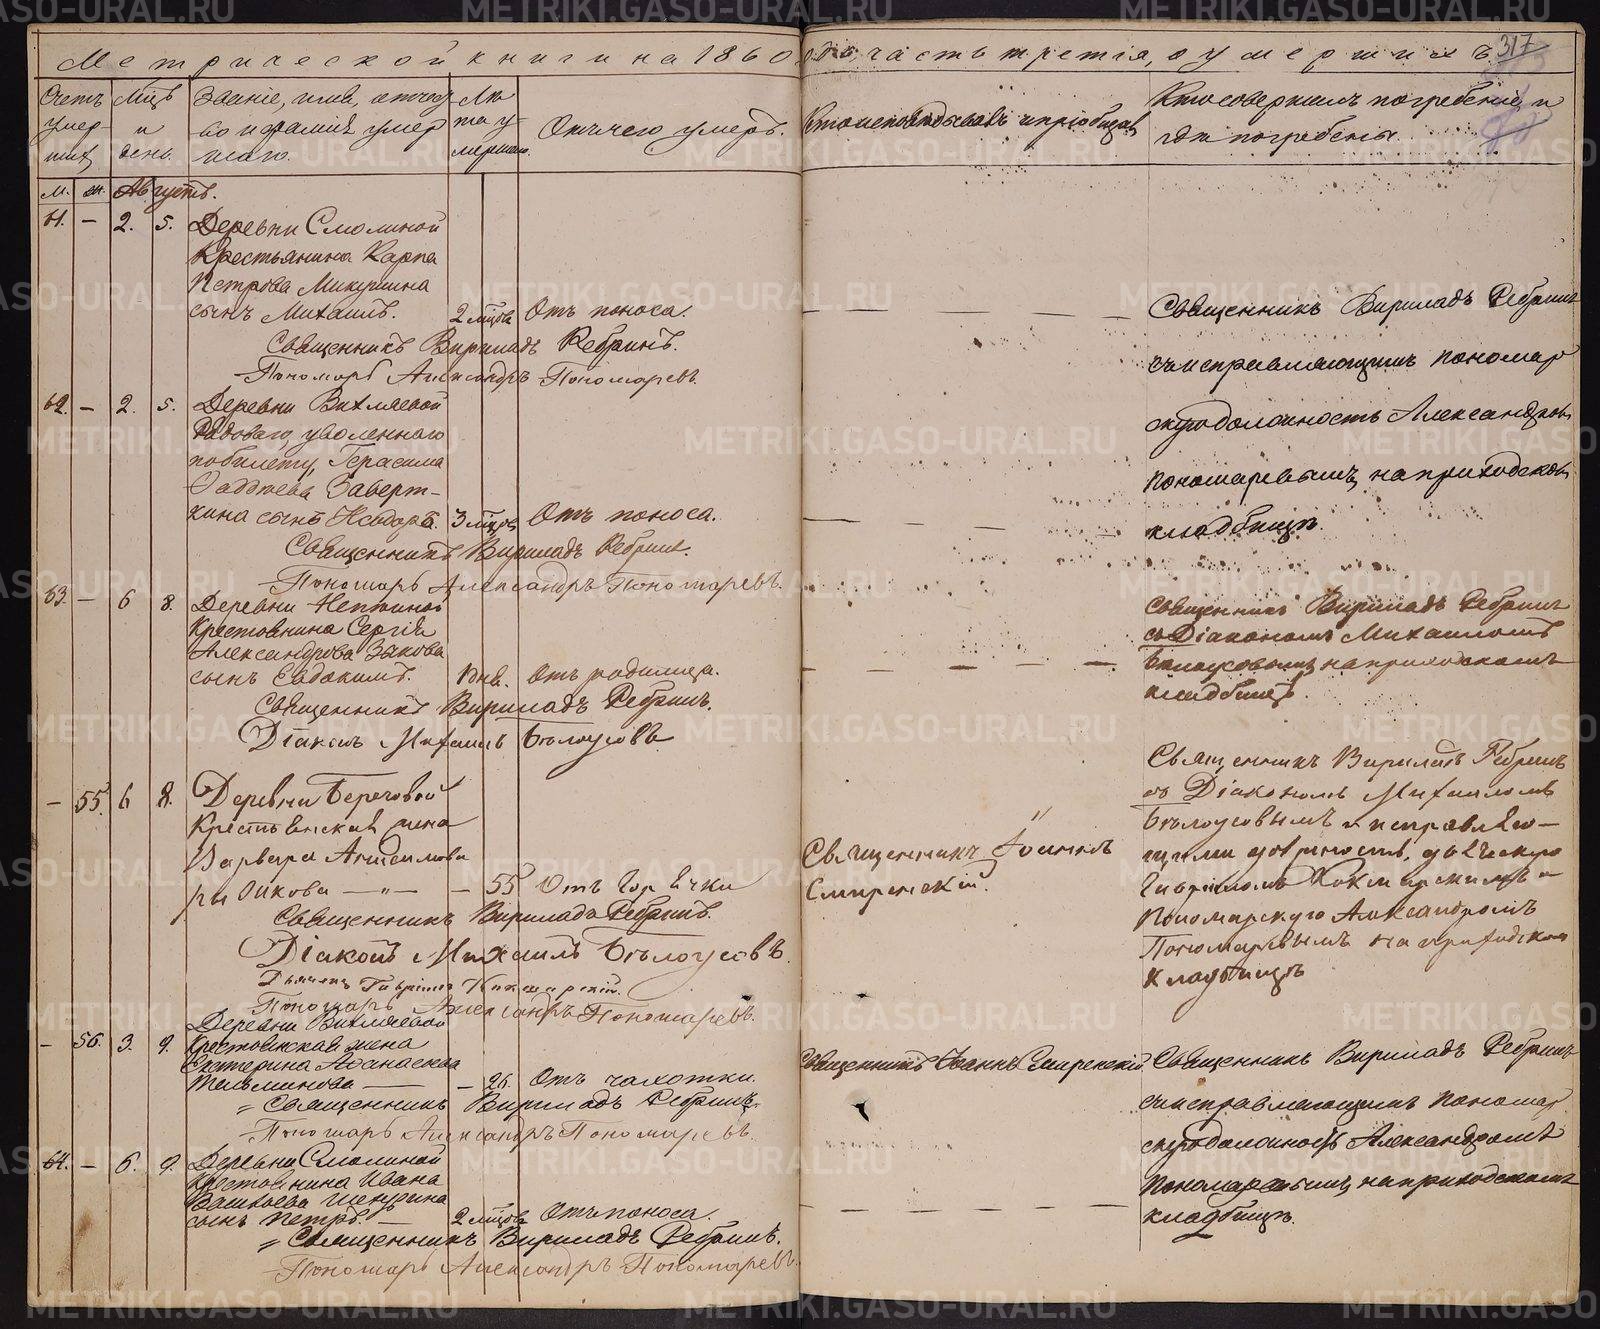 Метрической книги на 1860 годъ часть третія, о умершихъ.
317
Счетъ умер-
шихъ
Мцъ и день.
Званіе, имя, отчест-
во и фамилія умер-
шаго.
Лѣта умершаго.
Отъ чего умеръ.
Кто исповѣдывалъ и пріобщалъ
Кто совершалъ погребеніе и
гдѣ погребены.
м. ж. Августъ.
61. — 2. 5. Деревни Смолиной
Крестьянина Карпа
Петрова Микушина
сынъ Михаилъ. 2 мцовъ Отъ поноса.
Священникъ Вириладъ Ребринъ.
Пономарь Александръ Пономаревъ.
Священникъ Вириладъ Ребринъ
съ исправляющимъ пономар
скую должность Александромъ
Пономаревымъ, на приходскомъ
кладбищѣ.
62. — 2. 5. Деревни Вихляевой
Рядоваго, уволеннаго
по билету, Герасима
Фаддѣева Заверт-
кина сынъ Ѳеодоръ. 3 мцовъ Отъ поноса.
Священникъ Вириладъ Ребринъ.
Пономарь Александръ Пономаревъ.
63. — 6 8. Деревни
Крестьянина Сергія
Александрова Зыкова
сынъ Евдокимъ. 1 днв. Отъ родимца.
Священникъ Вириладъ Ребринъ.
Діаконъ Михаилъ Бѣлоусовъ
Священникъ Вириладъ Ребринъ
съ Діакономъ Михаиломъ
Бѣлоусовымъ, на приходскомъ
кладбищѣ.
— 55. 6 8. Деревни Береговой
Крестьянская жена
Варвара
— 55 Отъ Горячки
Священникъ Вириладъ Ребринъ.
Діаконъ Михаилъ Бѣлоусовъ.
Дьячекъ Гавріилъ
Пономарь Александръ Пономаревъ.
Священникъ Іоаннъ
Смиренскій.
Священникъ Вириладъ Ребринъ
съ Діакономъ Михаиломъ
Бѣлоусовымъ и исправляю-
щими должность, дьяческую
Гавріиломъ и
Пономарскую Александромъ
Пономаревымъ на приходскомъ
Кладбищѣ
— 56. 3. 9. Деревни Вихляевой
Крестьянская жена
Екатерина Аѳанасьева
— 26. Отъ чахотки.
Священникъ Вириладъ Ребринъ.
Пономарь Александръ Пономаревъ.
Священникъ Іоаннъ Смиренскій.
Священникъ Вириладъ Ребринъ
съ исправляющимъ пономар
скую должность Александромъ
Пономаревымъ, на приходскомъ
кладбищѣ.
64. — 6. 9. Деревни Смолиной
Крестьянина Ивана
сынъ Петръ. — 2 мцовъ Отъ поноса.
Священникъ Вириладъ Ребринъ.
Пономарь Александръ Пономаревъ.
METRIKI.GASO-URAL.RU